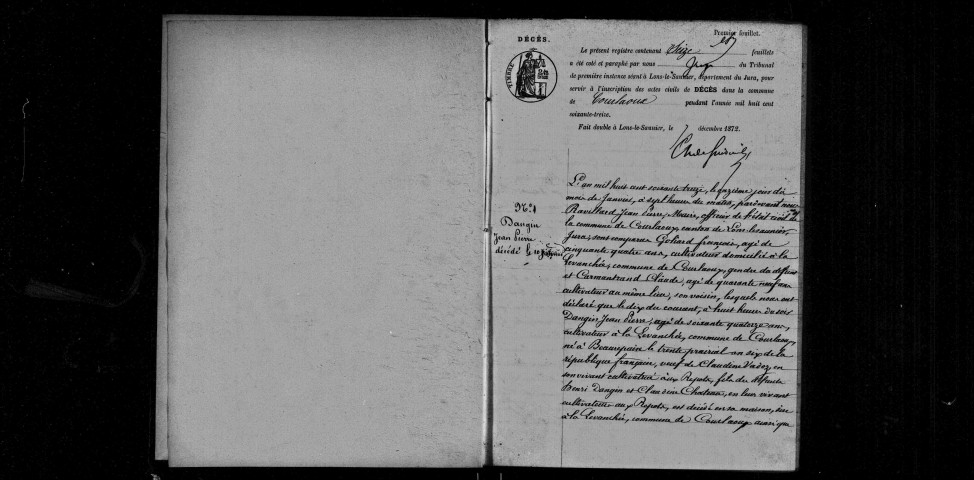 Premier feuillet.
DÉCÈS.
Le présent registre contenant Seize feuillets
a été coté et paraphé par nous Juge du Tribunal
de première instance séant à Lons-le-Saunier, département du Jura, pour
servir à l'inscription des actes civils de DÉCÈS dans la commune
de Courlaoux pendant l'année mil huit cent
soixante-treize.
Fait double à Lons-le-Saunier, le 7 décembre 1872.
TIMBRE
N° 1
Dangin
Jean Pierre
décédé le 10 Janvier
L'an mil huit cent soixante treize, le onzième jour du
mois de Janvier, à sept heures du matin, pardevant nous
Ravillard Jean Pierre, Maire, officier de l'état civil de
la commune de Courlaoux, canton de Lons-le-saunier,
Jura; sont comparus Goliard françois, agé de
cinquante quatre ans, cultivateur domicilié à la
Levanchée, commune de Courlaoux, gendre du défunt
et Carmantrand Claude, agé de quarante neuf ans
cultivateur au même lieu, son voisin, lesquels nous ont
déclaré que le dix du courant, à huit heures du soir
Dangin Jean Pierre, agé de soixante quatorze ans,
cultivateur à la Levanchée, commune de Courlaoux,
né à Beaurepaire le trente prairial an six de la
république française, veuf de Claudine Vadez, en
son vivant cultivatrice aux Repots, fils des défunts
Henri Dangin et Claudine Chateau, en leur vivant
cultivateurs aux Repots, est décédé en sa maison, sise
à la Levanchée, commune de Courlaoux ainsi que